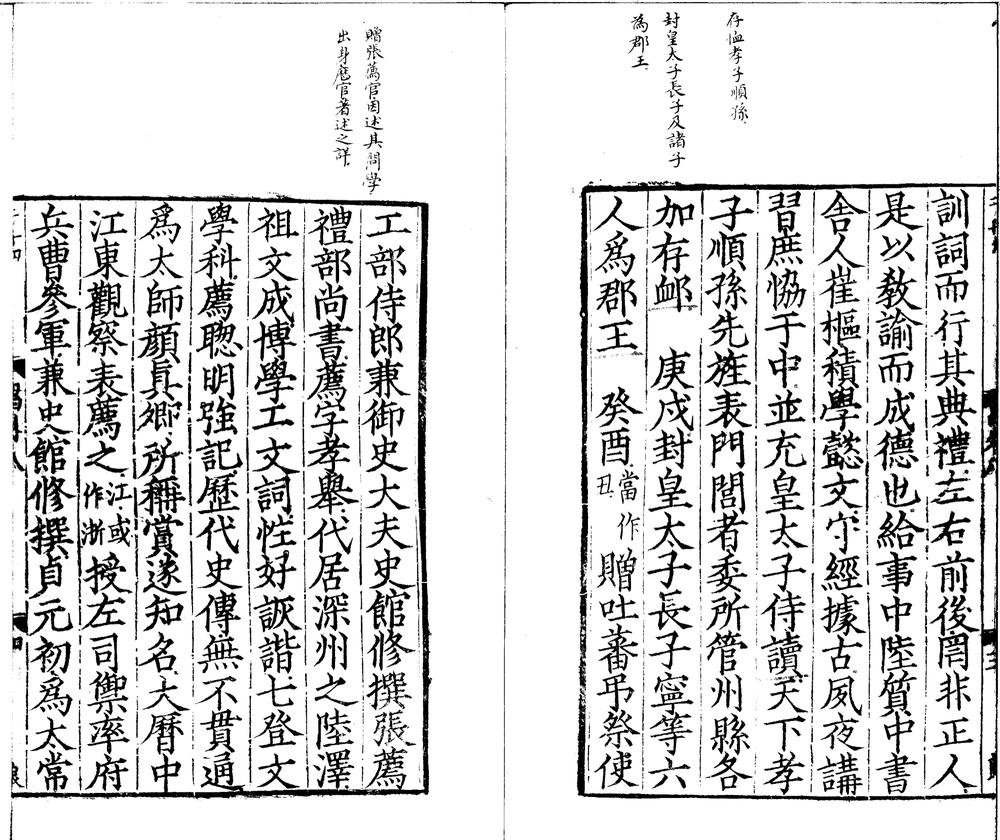 存恤孝子順孫
封皇太子長子及諸子
為郡王
訓詞而行其典禮左右前後罔非正人
是以教諭而成德也給事中陸質中書
舍人崔樞積學懿文守經據古夙夜講
習庶恊于中並充皇太子侍讀天下孝
子順孫先旌表門閭者委所管州縣各
加存衈　庚戌封皇太子長子寧等六
人爲郡王　癸酉當作丑贈吐蕃弔祭使
贈張薦官因述其問學
出身歷官著述之詳
工部侍郎兼御史大夫史館修撰張薦
禮部尚書薦字孝舉代居深州之陸澤
祖文成博學工文詞性好詼諧七登文
學科薦聦明強記歷代史傳無不貫通
爲太師顔真卿所稱賞遂知名大曆中
江東觀察表薦之江或作浙授左司禦率府
兵曹參軍兼史館修撰貞元初爲太常